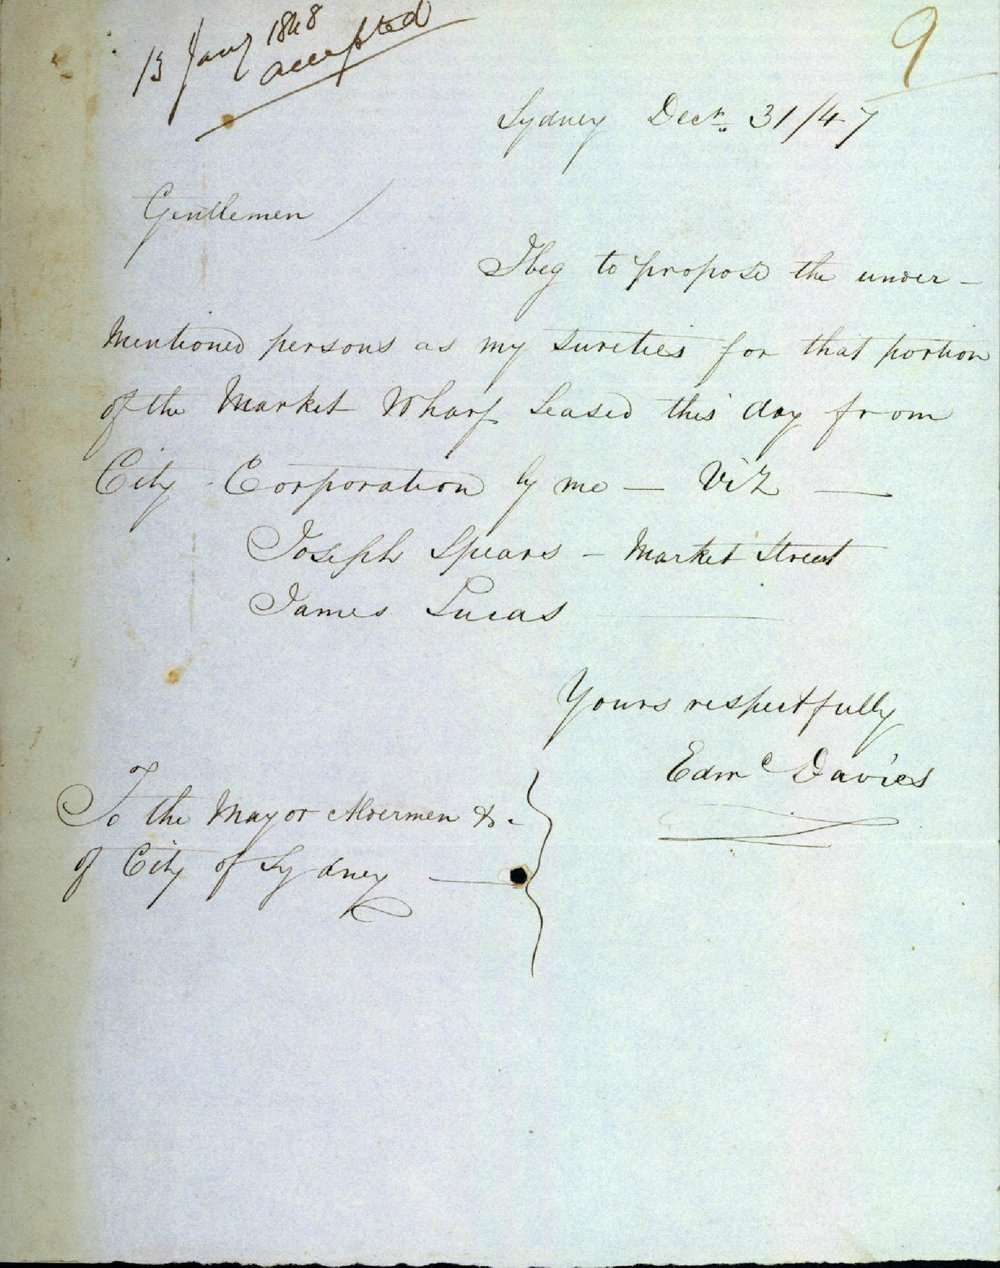 13 Jany 1848
accepted
9
Sydney Decr. 31/47
Gentlemen /
I beg to propose the under-
mentioned persons as my sureties for that portion
of the Market Wharf Leased this day from
City Corporation by me — Viz —
Joseph Spears – Market Street
James Lucas
Yours respectfully
Edmd Davies
To the Mayor Aldermen &c.
of City of Sydney